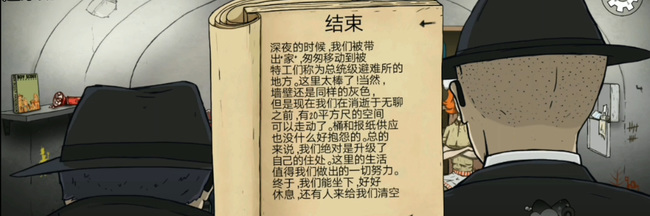 结束
深夜的时候,我们被带
出"家",匆匆移动到被
特工们称为总统级避难所的
地方。这里太棒了!当然,
墙壁还是同样的灰色,
但是现在我们在消逝于无聊
之前,有20平方尺的空间
可以走动了。桶和报纸供应
也没什么好抱怨的。总的
来说,我们绝对是升级了
自己的住处。这里的生活
值得我们做出的一切努力。
终于,我们能坐下,好好
休息,还有人来给我们清空
BOY SCOUT